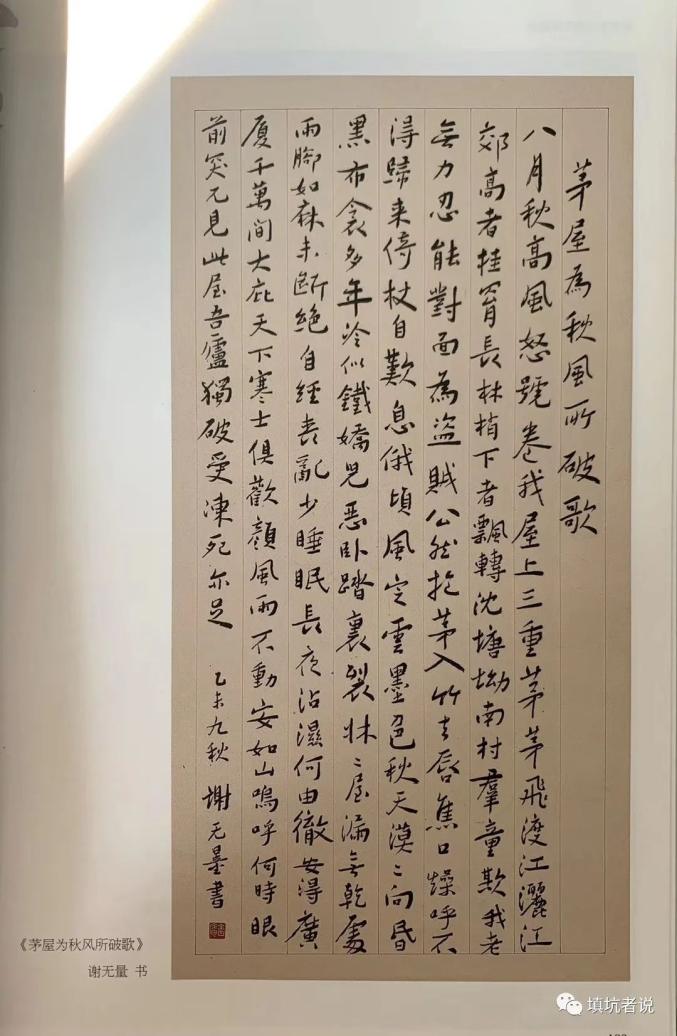 茅屋為秋風所破歌
八月秋高風怒號卷我屋上三重茅茅飛渡江灑江
郊高者挂罥長林梢下者飄轉沈塘坳南村羣童欺我老
無力忍能對面為盜賊公然抱茅入竹去唇焦口燥呼不
得歸来倚杖自歎息俄頃風定雲墨色秋天漠〻向昏
黑布衾多年冷似鐵嬌兒惡卧踏裏裂牀〻屋漏無乾處
雨腳如麻未斷絕自經喪乱少睡眠長夜沾濕何由徹安得廣
廈千萬間大庇天下寒士俱歡顏風雨不動安如山嗚呼何時眼
前突兀見此屋吾廬獨破受凍死亦足 乙未九秋 謝无量書
《茅屋为秋风所破歌》
谢无量 书
填坑者说